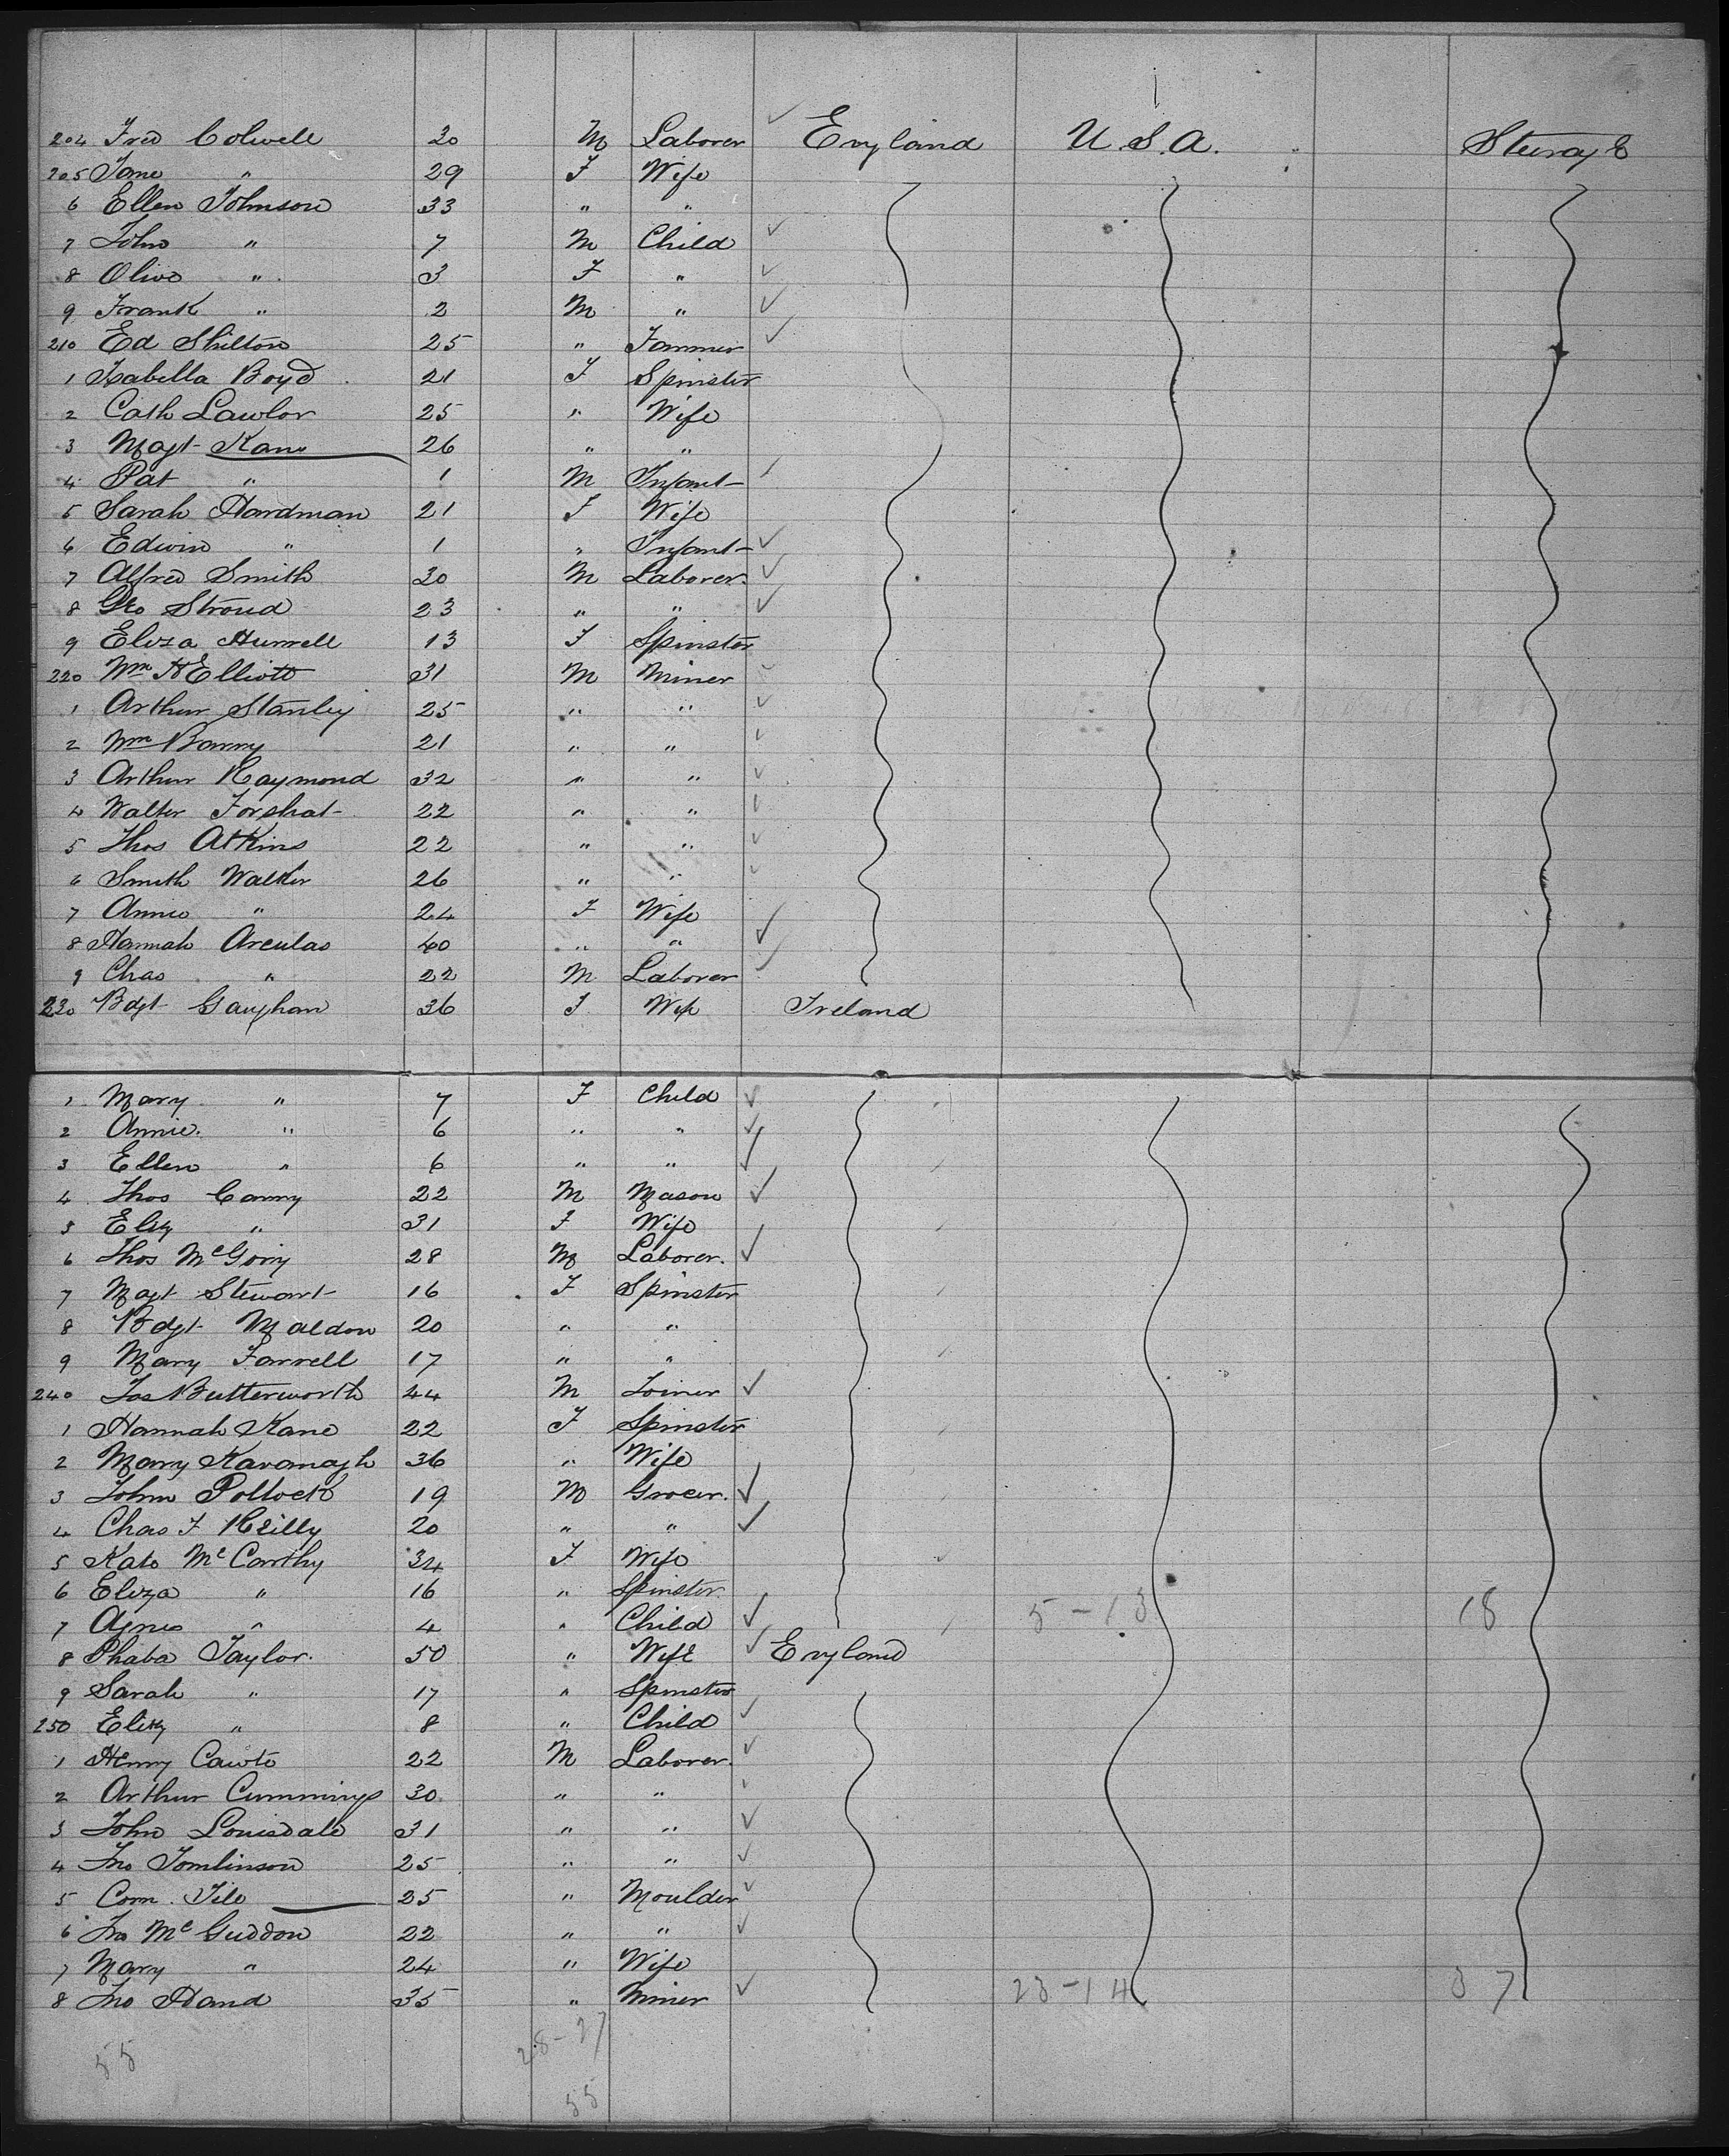 204 Fred Colwell 30 M Laborer England U.S.A. Steerage
205 Jane " 29 F Wife
6 Ellen Johnson 33 " "
7 John " 7 M Child
8 Olive " 3 F "
9 Frank " 2 M "
210 Ed Shilton 25 " Farmer
1 Isabella Boyd 21 F Spinster
2 Cath Lawlor 25 " Wife
3 Magt Kane 26 " "
4 Pat " 1 M Infant
5 Sarah Hardman 21 F Wife
6 Edwin " 1 " Infant
7 Alfred Smith 30 M Laborer
8 Geo Stroud 23 " "
9 Eliza Hurrell 13 F Spinster
220 Wm H Elliott 31 M Miner
1 Arthur Stanley 25 " "
2 Wm Barry 21 " "
3 Arthur Raymond 32 " "
4 Walter Forshat 22 " "
5 Thos Atkins 22 " "
6 Smith Walker 26 " "
7 Annie " 24 F Wife
8 Hannah Arculas 40 " "
9 Chas " 22 M Laborer
230 Bdgt Gaughan 36 F Wife Ireland
1 Mary " 7 F Child
2 Annie " 6 " "
3 Ellen " 6 " "
4 Thos Canny 22 M Mason
5 Eliz " 31 F Wife
6 Thos McGoiy 28 M Laborer
7 Magt Stewart 16 F Spinster
8 Bdgt Maldon 20 " "
9 Mary Farrell 17 " "
240 Jas Butterworth 44 M Joiner
1 Hannah Kane 22 F Spinster
2 Mary Kavanagh 36 " Wife
3 John Pollock 19 M Grocer
4 Chas F Reilly 20 " "
5 Kate McCarthy 34 F Wife
6 Eliza " 16 " Spinster
7 Agnes " 4 " Child 5-13 18
8 Phaba Taylor 50 " Wife England
9 Sarah " 17 " Spinster
250 Eliz " 8 " Child
1 Henry Cawte 22 M Laborer
2 Arthur Cummings 30 " "
3 John Lonisdale 31 " "
4 Jno Tomlinson 25 " "
5 Corn. Tile 25 " Moulder
6 Jno McGuddon 22 " "
7 Mary " 24 " Wife
8 Jno Hand 35 " Miner 23-14 37
28-27
55
55